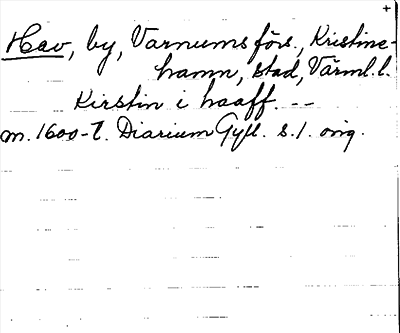 +
Hav, by, Varnums förs., Kristine-
hamn, stad, Värml. l.
Kirstin i haaff. --
m. 1600-t. Diarium Gyll. s. 1. orig.